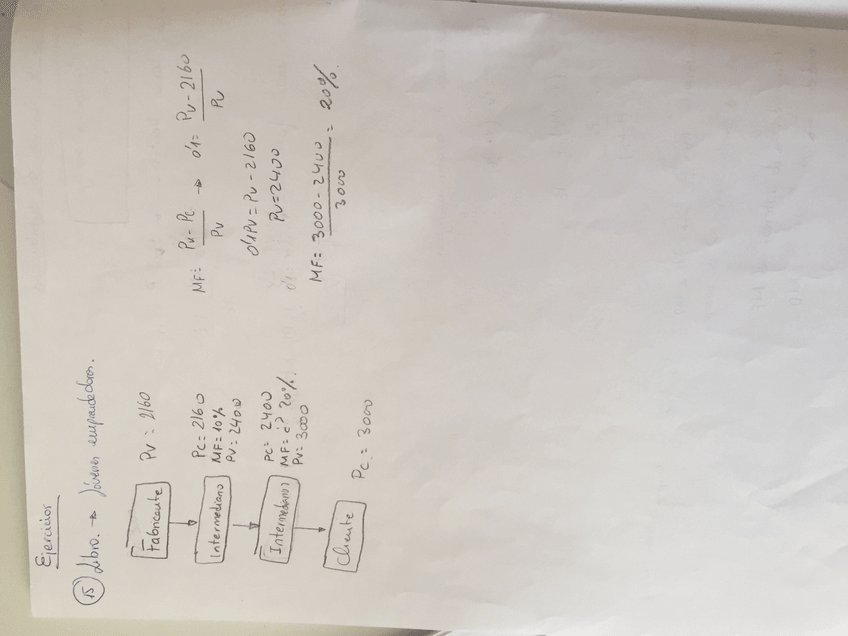 Ejercicios
15 Libro. → Jóvenes emprendedores.
Fabricante PV = 2160
Intermediario
PC = 2160
MF = 10%
PV = 2400
Intermediario2
PC = 2400
MF = ¿? 20%.
PV = 3000
Cliente PC. = 3000
MF = PV - PC / PV → 0'1 = PV - 2160 / PV
0'1PV = PV - 2160
PV = 2400
MF = 3000 - 2400 / 3000 = 20%.